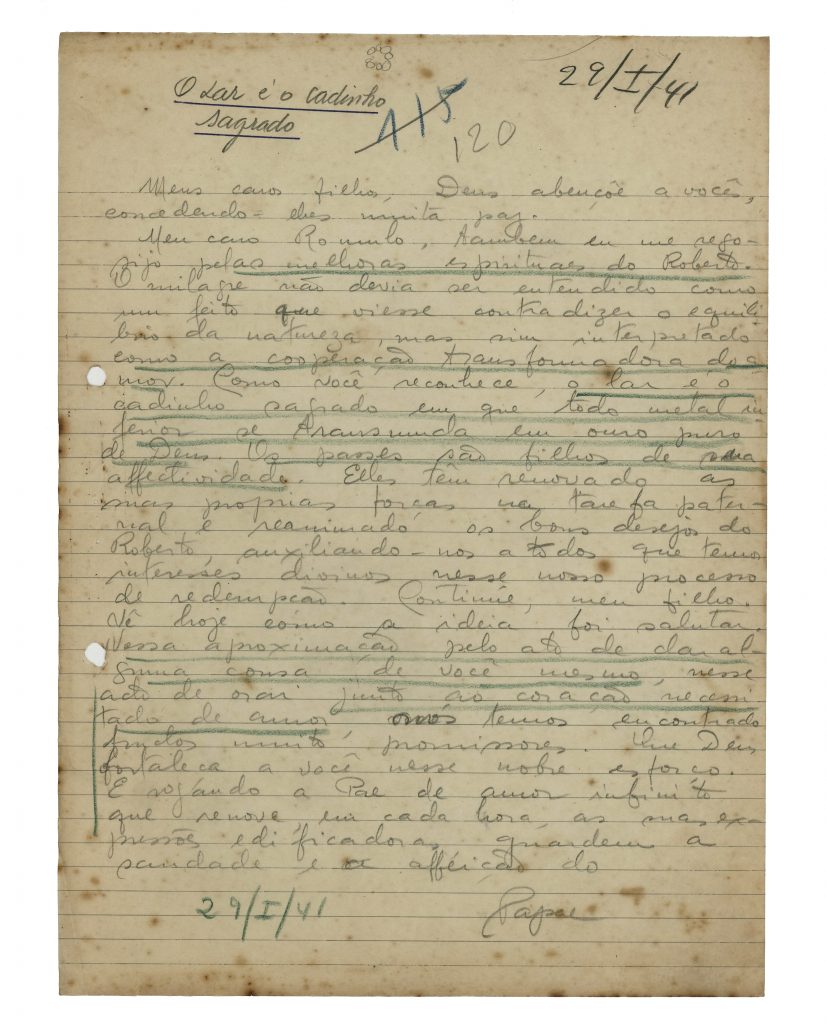 29/I/41
O Lar é o cadinho
sagrado
115
120
Meus caros filhos, Deus abençôe a vocês,
concedendo-lhes muita paz.
Meu caro Romulo, tambem eu me rego-
sijo pelas melhoras espirituaes do Roberto.
O milagre não devia ser entendido como
um feito que viesse contradizer o equili-
brio da natureza, mas sim interpretado
como a cooperação transformadora do a-
mor. Como você reconhece, o lar é o
cadinho sagrado em que todo metal in-
ferior se transmuda em ouro puro
de Deus. Os passes são filhos de sua
affectividade. Elles têm renovado as
suas proprias forças na tarefa pater-
nal e reanimado os bons desejos do
Roberto, auxiliando-nos a todos que temos
interesses divinos nesse nosso processo
de redempção. Continúe, meu filho.
Vê hoje como a ideia foi salutar.
Nessa aproximação pelo ato de dar al-
guma cousa de você mesmo, nesse
acto de orar junto ao coração necessi-
tado de amor, nós temos encontrado
fructos muito promissores. Que Deus
fortaleça a você nesse nobre esforço.
E rogando a Pae de amor infinito
que renove, em cada hora, as suas ex-
pressões edificadoras, guardem a
saudade e a afféição do
Papae
29/I/41